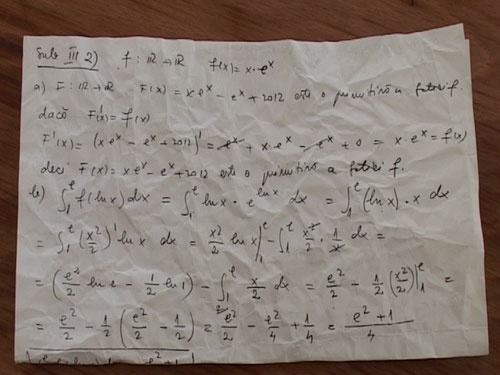 Sub III 2) f: ℝ → ℝ f(x) = x · e^x
a) F: ℝ → ℝ F(x) = x e^x − e^x + 2012 este o primitivă a funcției f.
dacă F'(x) = f(x)
F'(x) = (x e^x − e^x + 2012)' = e^x + x · e^x − e^x + 0 = x · e^x = f(x)
deci F(x) = x e^x − e^x + 2012 este o primitivă a funcției f.
b) ∫_1^e f(ln x) dx = ∫_1^e ln x · e^{ln x} dx = ∫_1^e (ln x) · x dx
= ∫_1^e (x²/2)' ln x dx = x²/2 ln x |_1^e − ∫_1^e x²/2 · 1/x dx =
= (e²/2 ln e − 1/2 ln 1) − ∫_1^e x/2 dx = e²/2 − 1/2 (x²/2) |_1^e =
= e²/2 − 1/2 (e²/2 − 1/2) = e²/2 − e²/4 + 1/4 = (e² + 1)/4